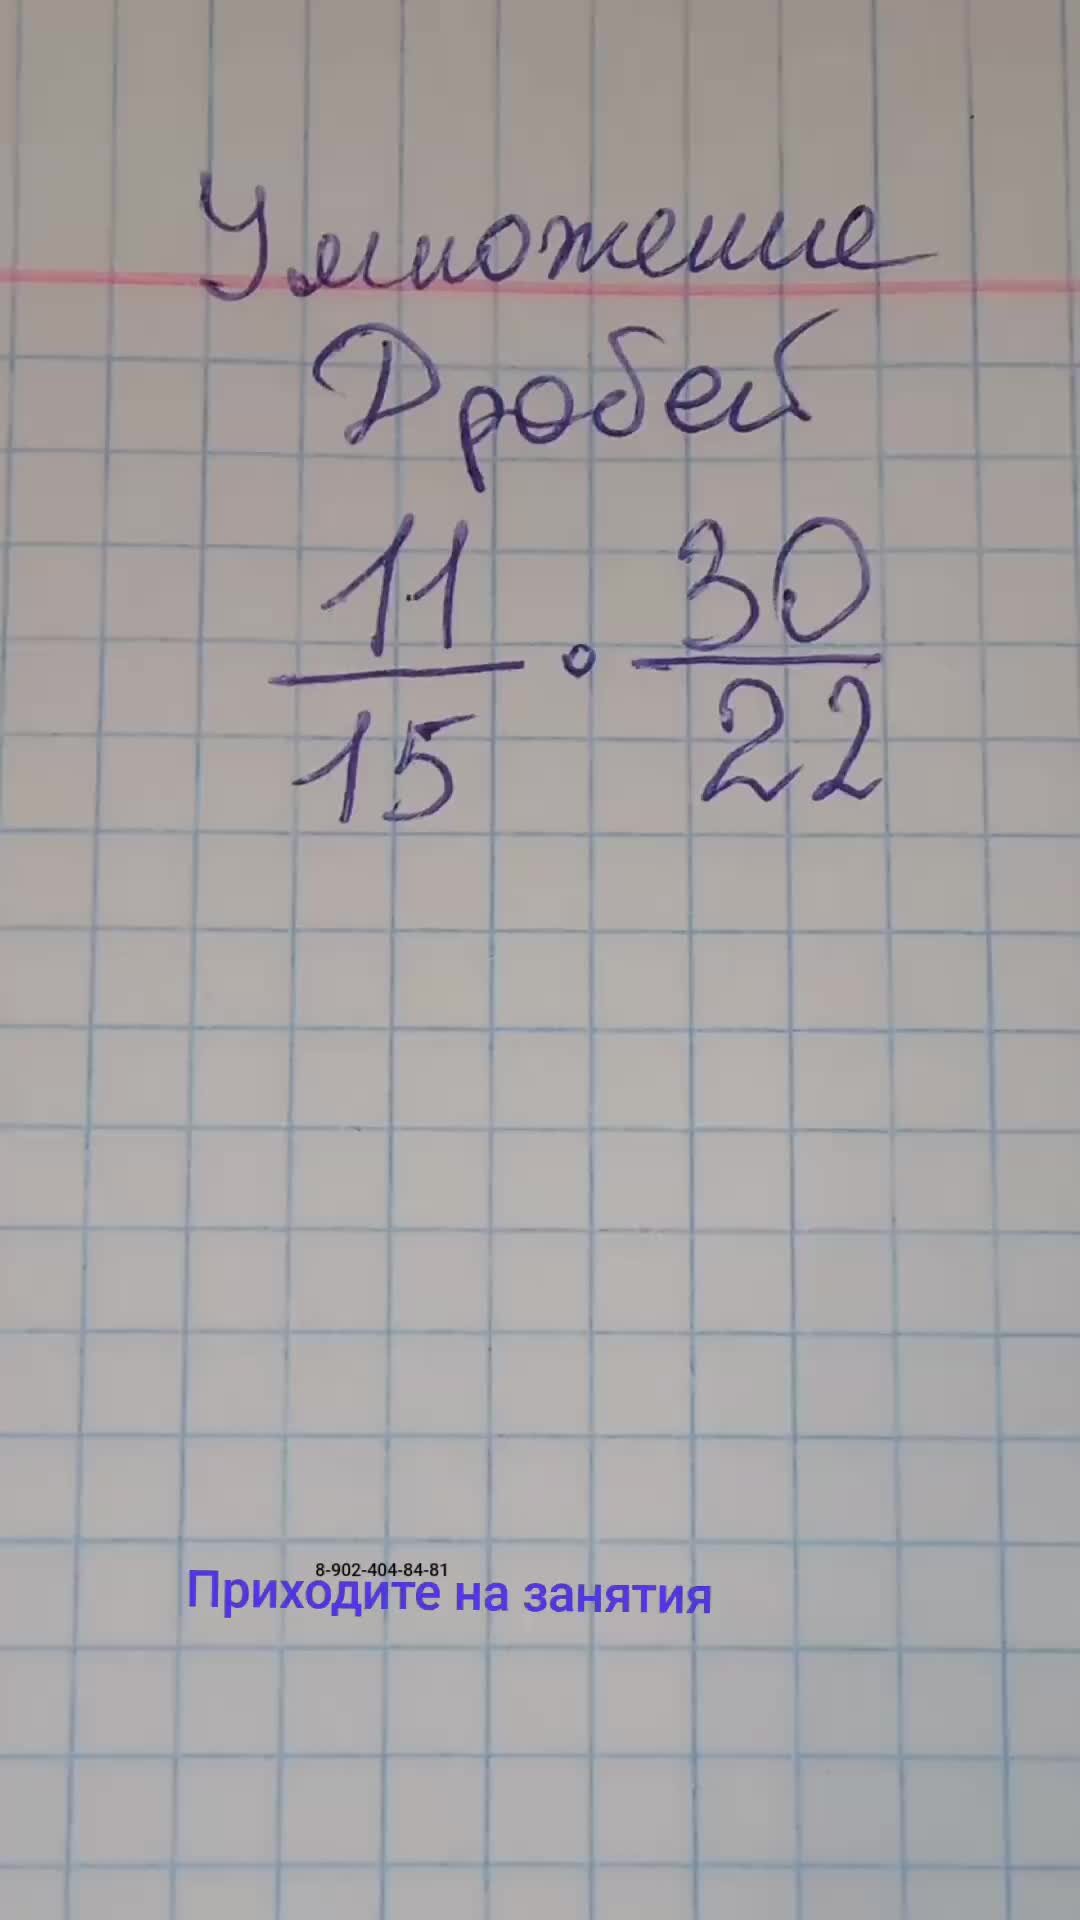 Умножение
Дробей
11/15 · 30/22
8-902-404-84-81
Приходите на занятия